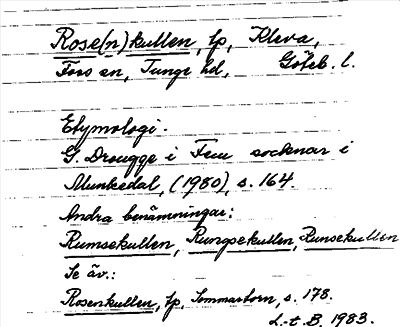 Rose(n)kullen, tp, Kleva,
Foss sn, Tunge hd, Göteb. l.
Etymologi.
G. Drougge i Fem socknar i
Munkedal, (1980), s. 164.
Andra benämningar:
Rumsekullen, Rungsekullen, Runsekullen
Se äv.:
Rosenkullen, tp, s. 178.
L-t B. 1983.